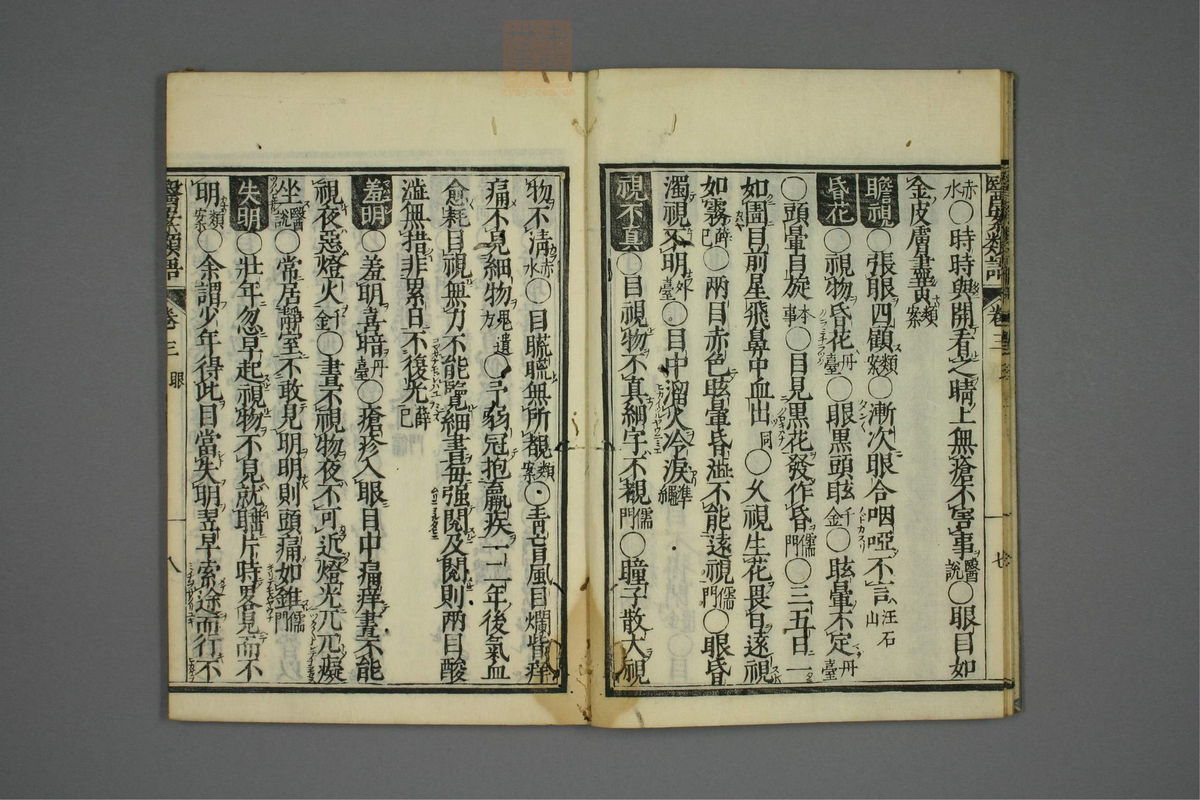 醫學類語 卷三 七
赤水○時時與開看之睛上無瘡不害事醫說○眼目如
金皮膚畢黄類案
瞻視○張眼四顧類案○漸次眼合咽啞不言汪石山
昏花○視物昏花丹臺○眼黒頭眩千金○眩暈不定丹臺
○頭暈自旋本事○目見黒花發作昏儒門○三五日一
如圊目前星飛鼻中血出同○久視生花畏日遠視
如霧薛己○兩目赤色眩暈昏澁不能遠視儒門○眼昏
濁視不明外臺○目中溜火冷淚準繩
視不真○目視物不真細字不覩儒門○瞳子散大視
物不淸赤水○目䀮䀮無所覩類案○靑盲風目爛眥痒
痛不見細物鬼遺方○弓弱冠抱羸疾一二年後氣血
愈耗目視無力不能覽細書毎强閱及閱則兩目酸
澁無措非累日不復光薛己
羞明○羞明喜暗丹臺○瘡疹入眼目中痛痒晝不能
視夜惡燈火金○晝不視物夜不可近燈光兀兀癡
坐醫說○常居靜室不敢見明明則頭痛如錐儒門
失明○壯年忽早起視物不見就睡片時畧見而不
明類案○余謂少年得此目當失明翌早索途而行不
醫學類語 卷三 眼 八